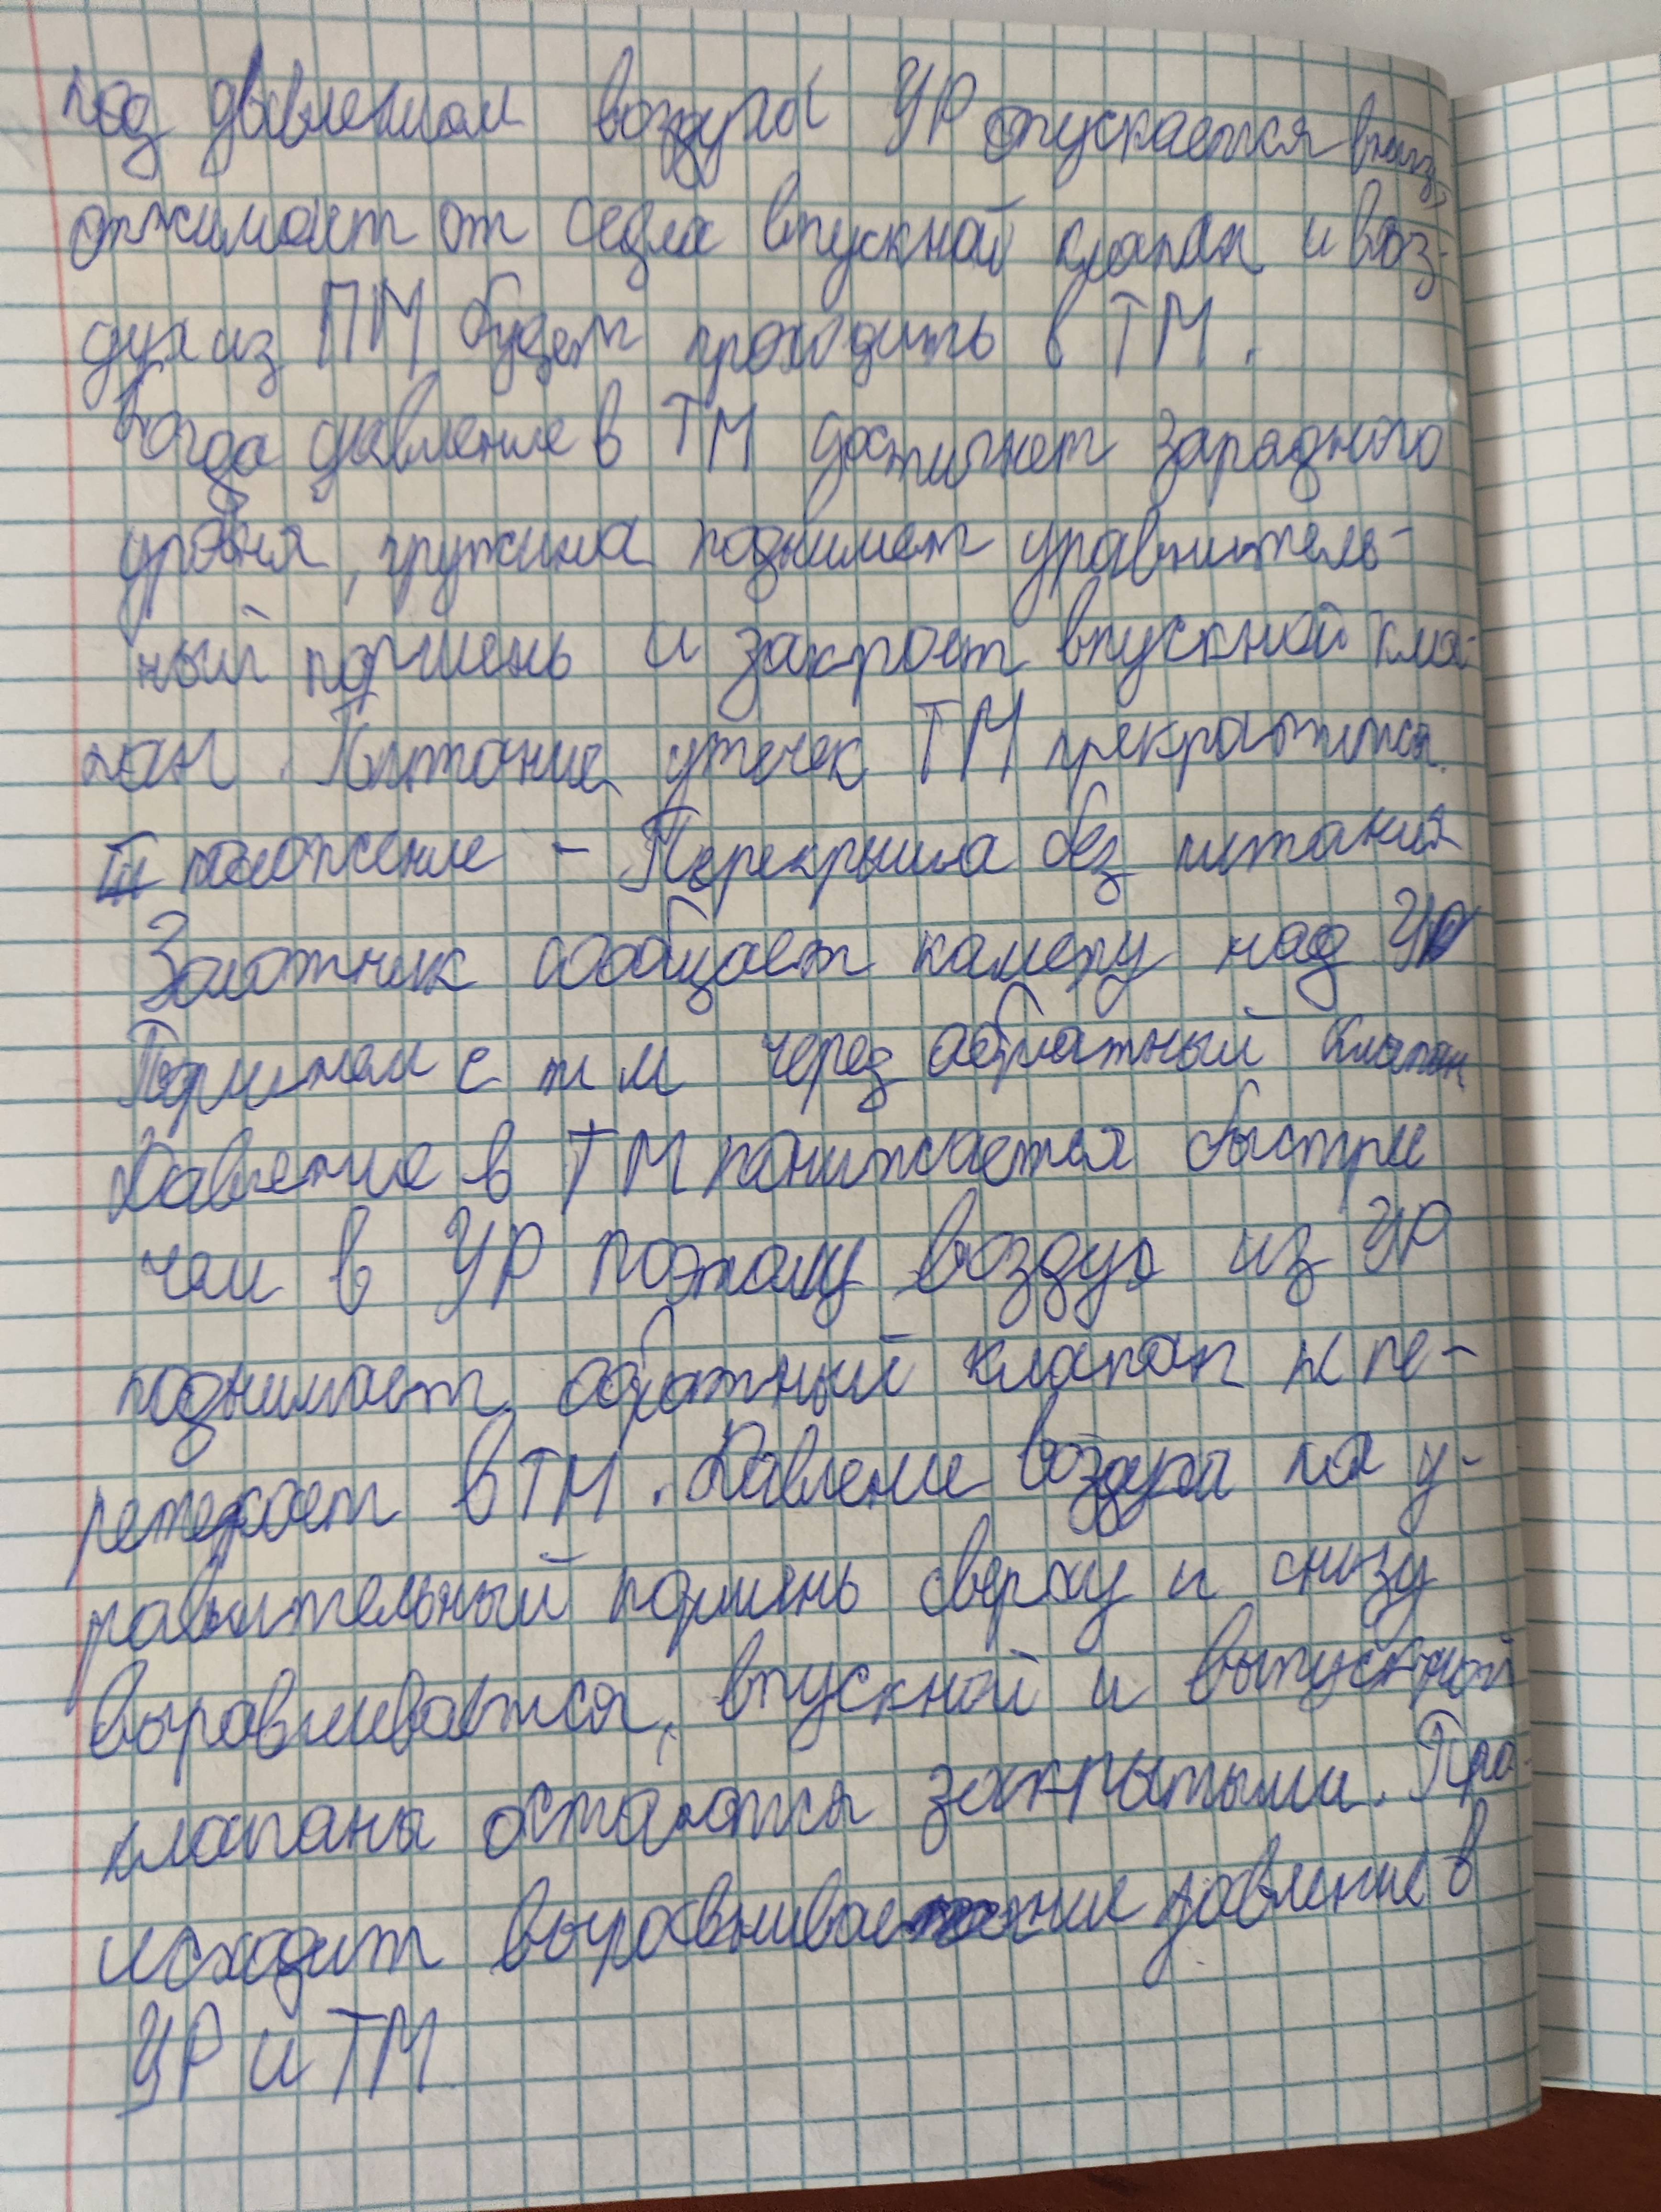 под давлением воздуха УР опускается вниз,
отжимает от седла впускной клапан и воз-
дух из ПМ будет проходить в ТМ.
Когда давление в ТМ достигнет зарядного
уровня, пружина поднимет уравнитель-
ный поршень и закроет впускной кла-
пан. Питание утечек ТМ прекратится.
III положение - Перекрыша без питания
Золотник сообщает камеру над УР
Поршнем с тм через обратный клапан
Давление в ТМ понижается быстрее
чем в УР поэтому воздух из УР
поднимает обратный клапан и пе-
ретекает в ТМ. Давление воздуха на у-
равнительный поршень сверху и снизу
выравнивается, впускной и выпускной
клапаны остаются закрытыми. Про-
исходит выравнивание давление в
УР и ТМ